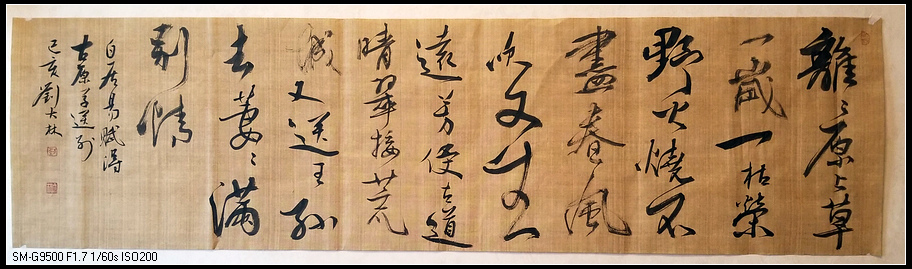 離〻原上草
一歲一枯榮
野火燒不
盡春風
吹又生
遠芳侵古道
晴翠接荒
城又送王孫
去萋〻滿
別情
白居易賦得
古原草送別
己亥劉大林
SM-G9500 F1.7 1/60s ISO200